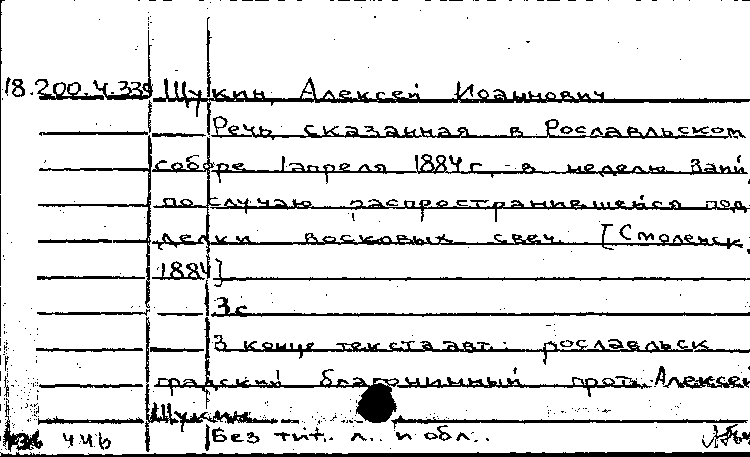 18.200.4.339 Щукин, Алексей Иоаннович
Речь, сказанная в Рославльском
соборе 1 апреля 1884 г. в неделю Ваий
по случаю распространившейся под
делки восковых свеч. [Смоленск,
1884]
3 с
В конце текста авт.: рославльск
градский благочинный прот. Алексей
Щукин
44б Без тит. л. и обл..